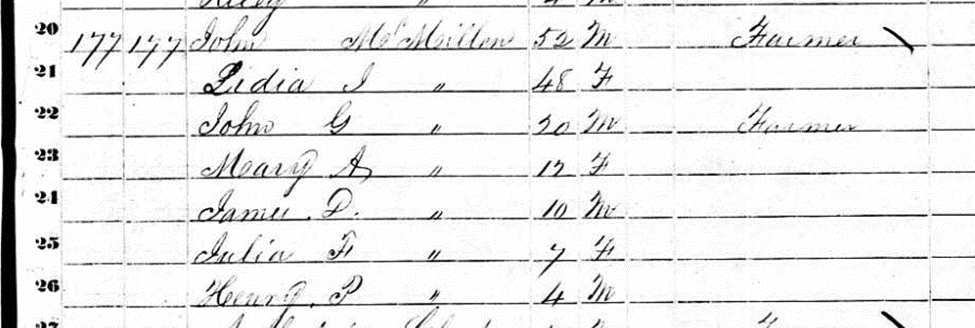 20 177 177 John McMillen 52 M Farmer
21 Lidia J " 48 F
22 John G " 20 M Farmer
23 Mary A " 12 F
24 James D. " 10 M
25 Julia F " 7 F
26 Henry P " 4 M
27